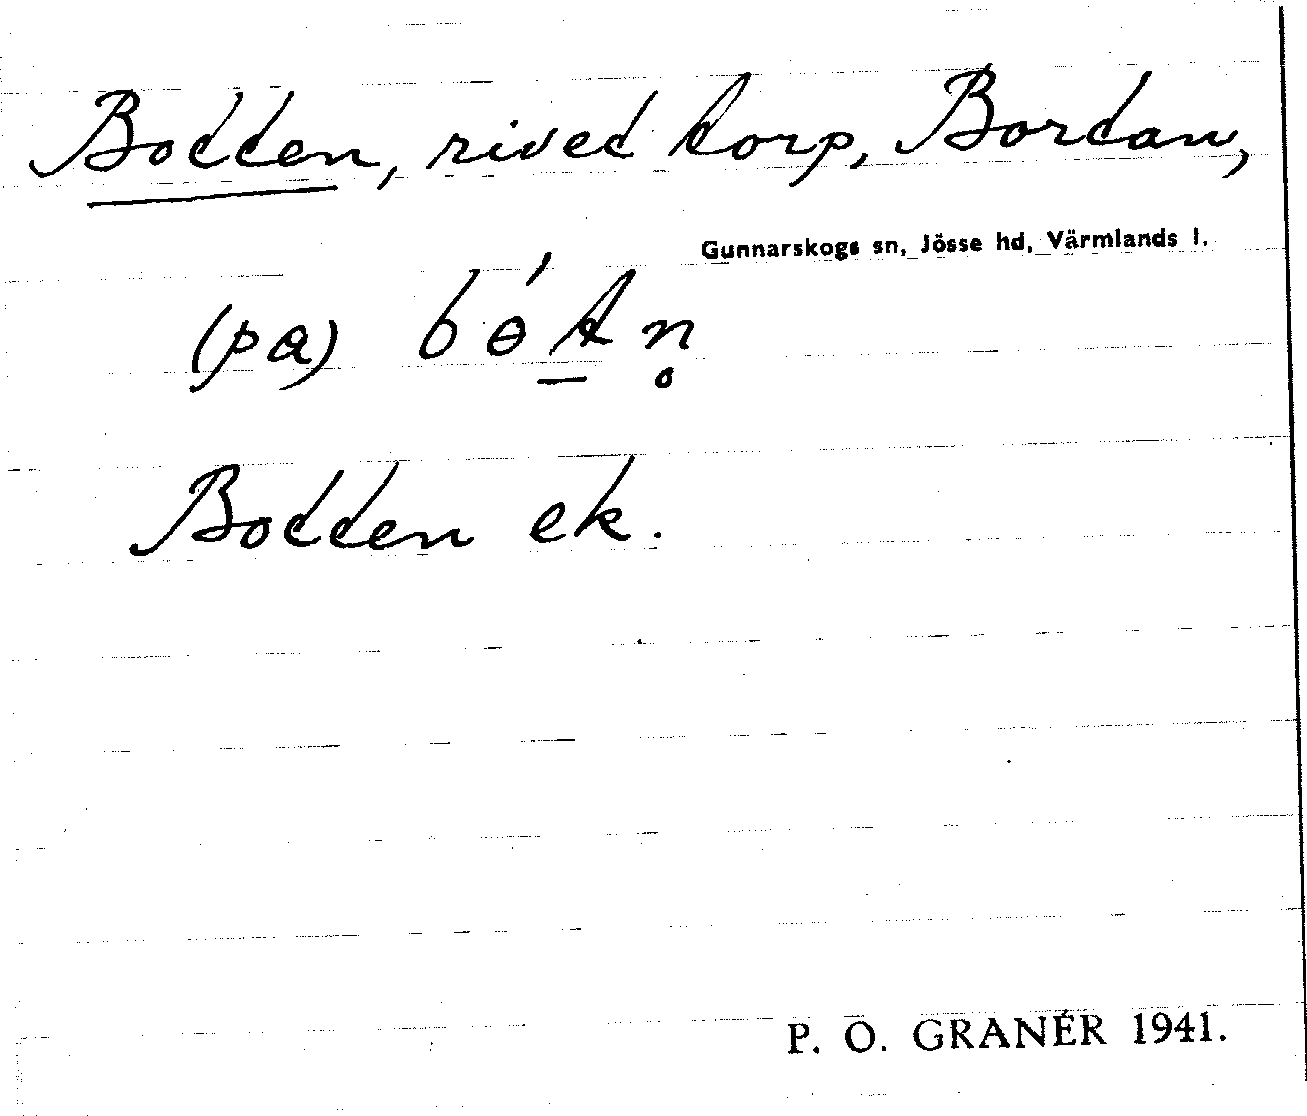 Botten, rivet torp, Bortan,
Gunnarskogs sn, Jösse hd, Värmlands l.
(pa) bɵ́t̠n̥
Botten ek.
P. O. GRANÉR 1941.